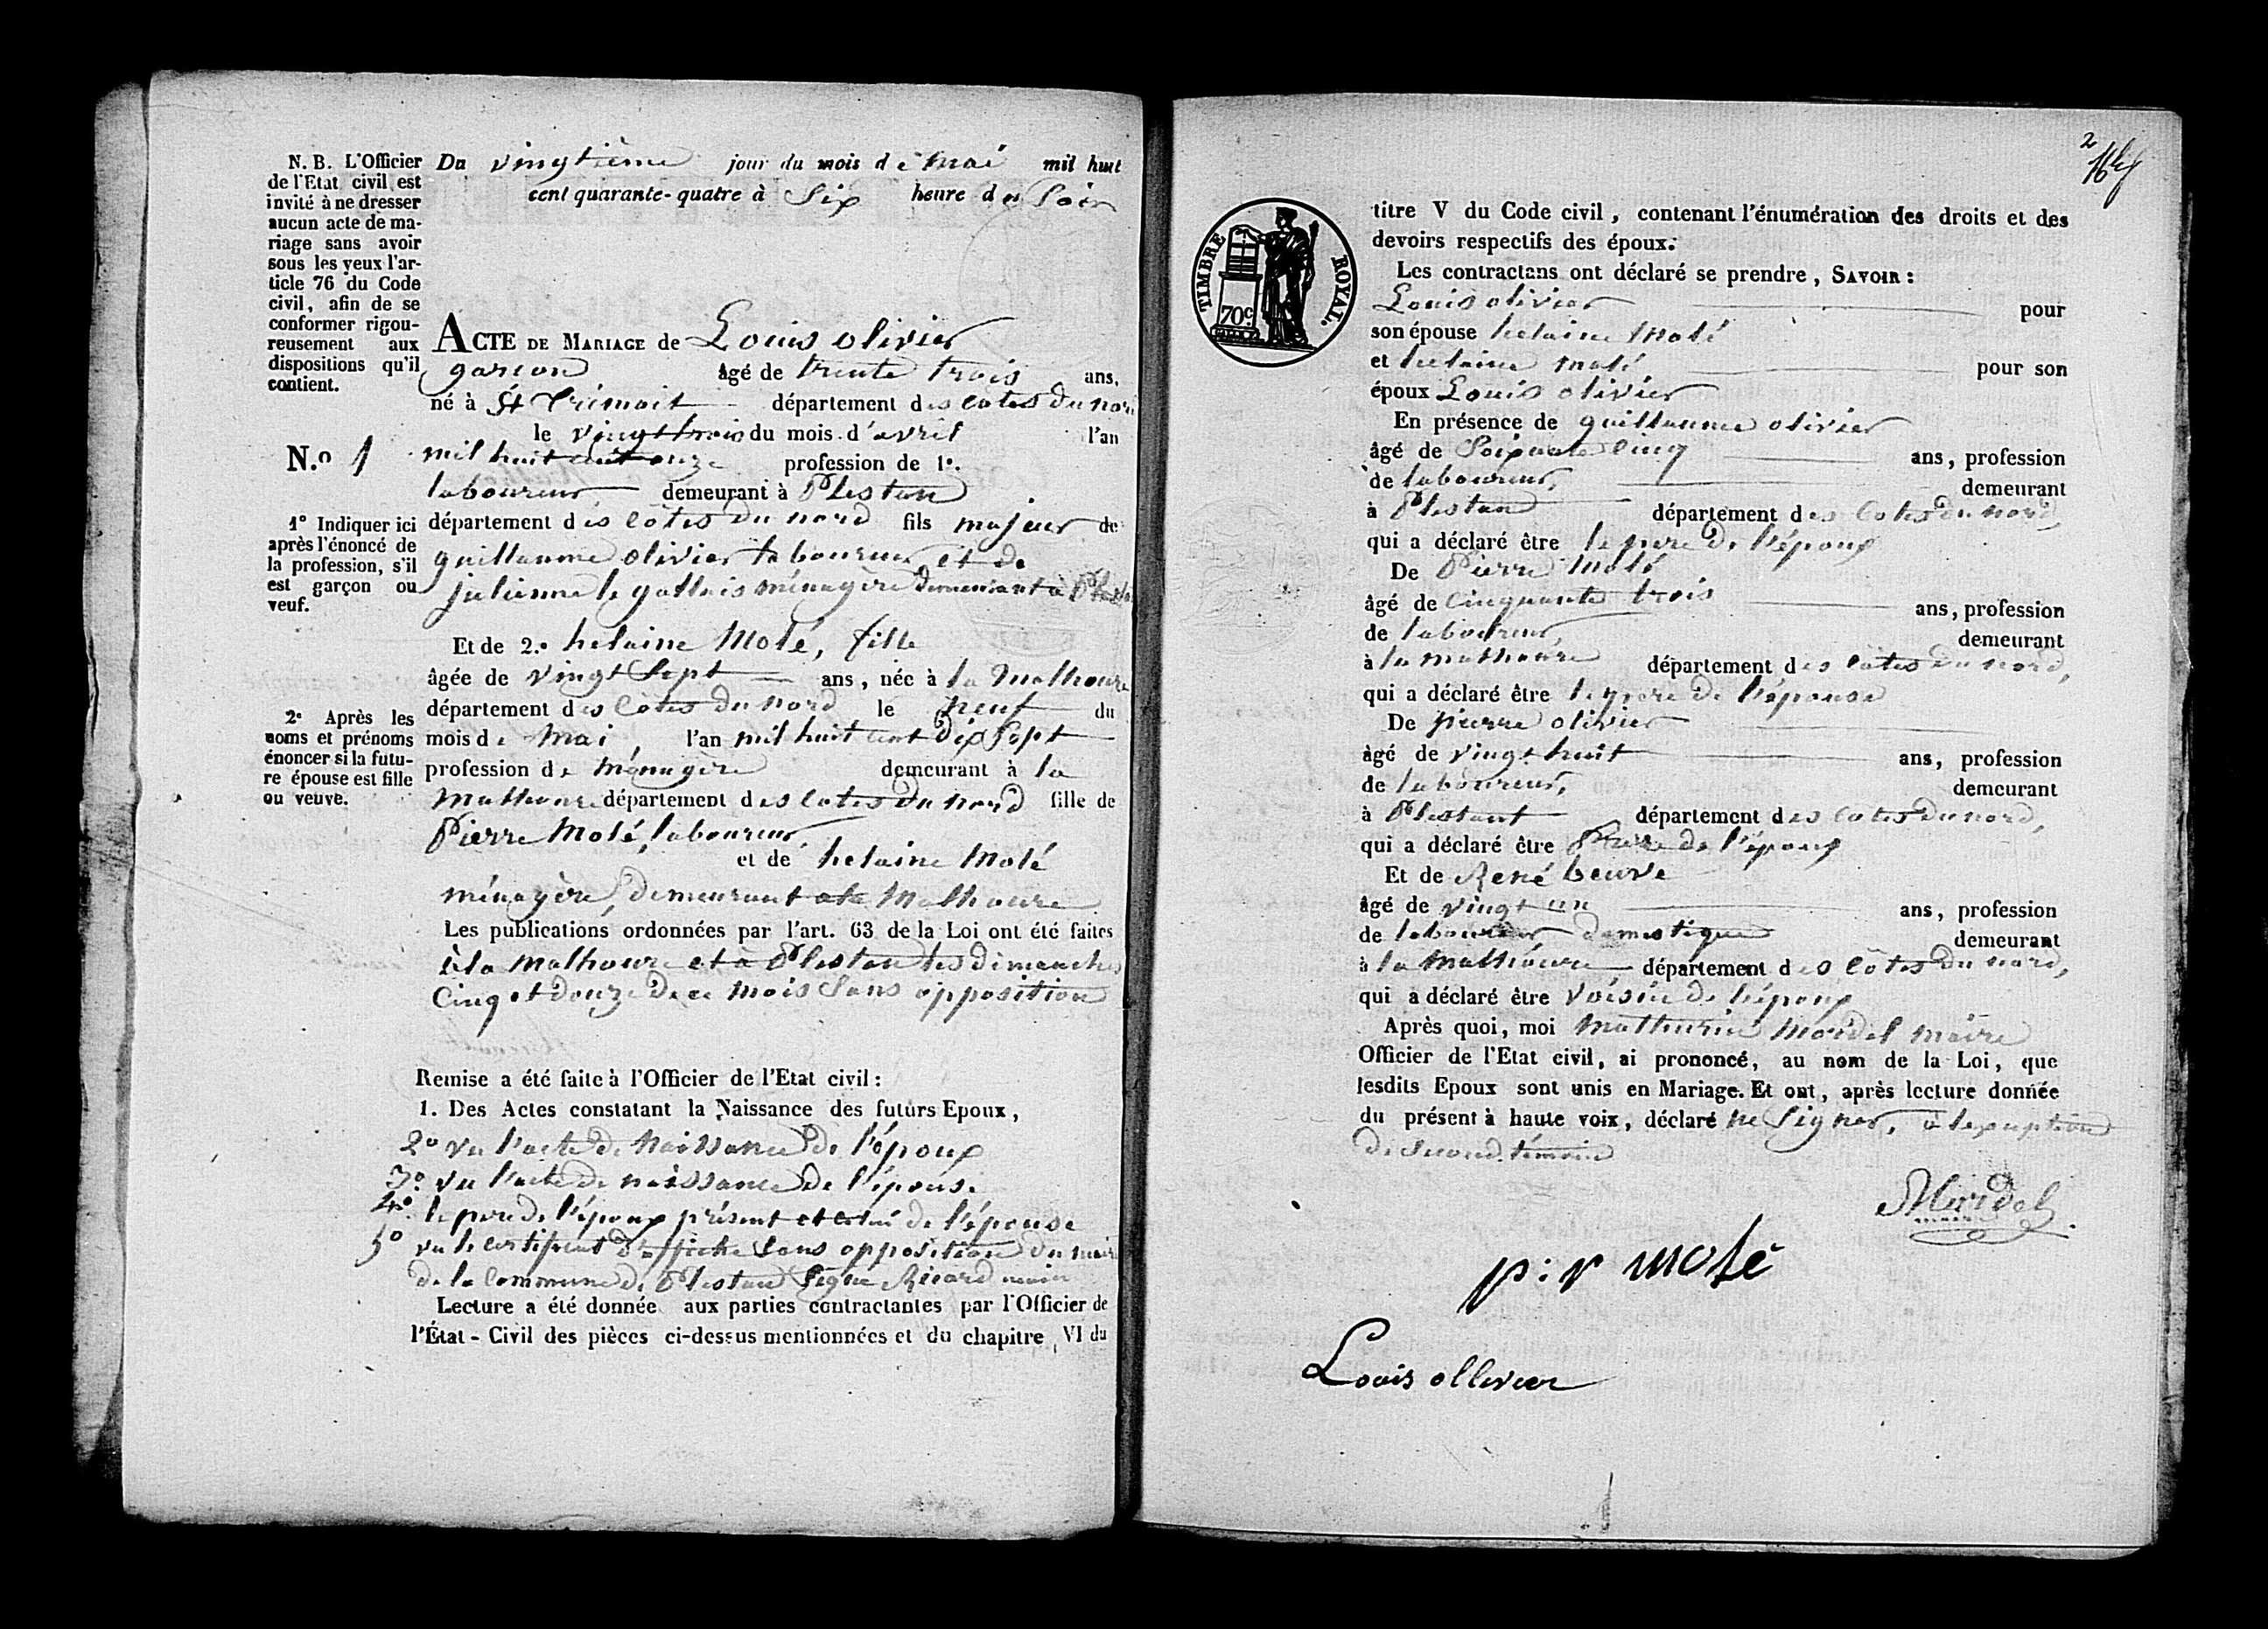 N. B. L'Officier
de l'Etat civil est
invité à ne dresser
aucun acte de ma-
riage sans avoir
sous les yeux l'ar-
ticle 76 du Code
civil, afin de se
conformer rigou-
reusement aux
dispositions qu'il
contient.
N.o 1
1o Indiquer ici
après l'énoncé de
la profession, s'il
est garçon ou
veuf.
2e Après les
noms et prénoms
énoncer si la futu-
re épouse est fille
ou veuve.
Du vingtième jour du mois de mai mil huit
cent quarante-quatre à Six heure du Soir
ACTE DE MARIAGE de Louis olivier
garçon âgé de trente trois ans,
né à St département des cotes du nord
le vingt trois du mois d'avril l'an
mil huit cent onze profession de 1o.
laboureur demeurant à Plestan
département des côtes du nord fils majeur de
guillaume olivier laboureur et de
julienne le gallais ménagère demeurant à
Et de 2.o helaine Molé, fille
âgée de vingt Sept ans, née à la Malhoure
département des Côtes du nord le neuf du
mois de Mai, l'an mil huit cent dix Sept
profession de ménagère demeurant à la
Malhoure département des cotes du nord fille de
Pierre Molé, laboureur,
et de helaine Molé
ménagère, demeurant a la Malhoure
Les publications ordonnées par l'art. 63 de la Loi ont été faites
à la Malhoure et à Plestan les dimanches
Cinq et douze de ce mois Sans opposition
Remise a été faite à l'Officier de l'Etat civil :
1. Des Actes constatant la Naissance des futurs Epoux,
2o vu l'acte de Naissance de l'époux
3o vu l'acte de naissance de l'épouse
4o le père de l'époux présent et celui de l'épouse
5o vu le certificat d'affiche Sans opposition du maire
de la Commune de Plestan Signé Ricard maire
Lecture a été donnée aux parties contractantes par l'Officier de
l'État-Civil des pièces ci-dessus mentionnées et du chapitre VI du
2
TIMBRE ROYAL.
70c
titre V du Code civil, contenant l'énumération des droits et des
devoirs respectifs des époux.
Les contractans ont déclaré se prendre, SAVOIR :
Louis olivier pour
son épouse helaine Molé
et helaine molé pour son
époux Louis olivier
En présence de guillaume olivier
âgé de Soixante cinq ans, profession
de laboureur, demeurant
à Plestan département des Cotes du nord,
qui a déclaré être le père de l'époux
De Pierre Molé
âgé de cinquante trois ans, profession
de laboureur, demeurant
à la malhoure département des Côtes du nord,
qui a déclaré être le père de l'épouse
De pierre olivier
âgé de vingt huit ans, profession
de laboureur, demeurant
à Plestant département des Cotes du nord,
qui a déclaré être frère de l'époux
Et de René beurve
âgé de vingt un ans, profession
de laboureur domestique demeurant
à la Malhoure département des Côtes du nord,
qui a déclaré être Voisin de l'époux
Après quoi, moi Mathurin Mordel maire
Officier de l'Etat civil, ai prononcé, au nom de la Loi, que
lesdits Epoux sont unis en Mariage. Et ont, après lecture donnée
du présent à haute voix, déclaré ne Signer, à l'exception
de Second témoin
Mordel
p:r molé
Louis ollivier